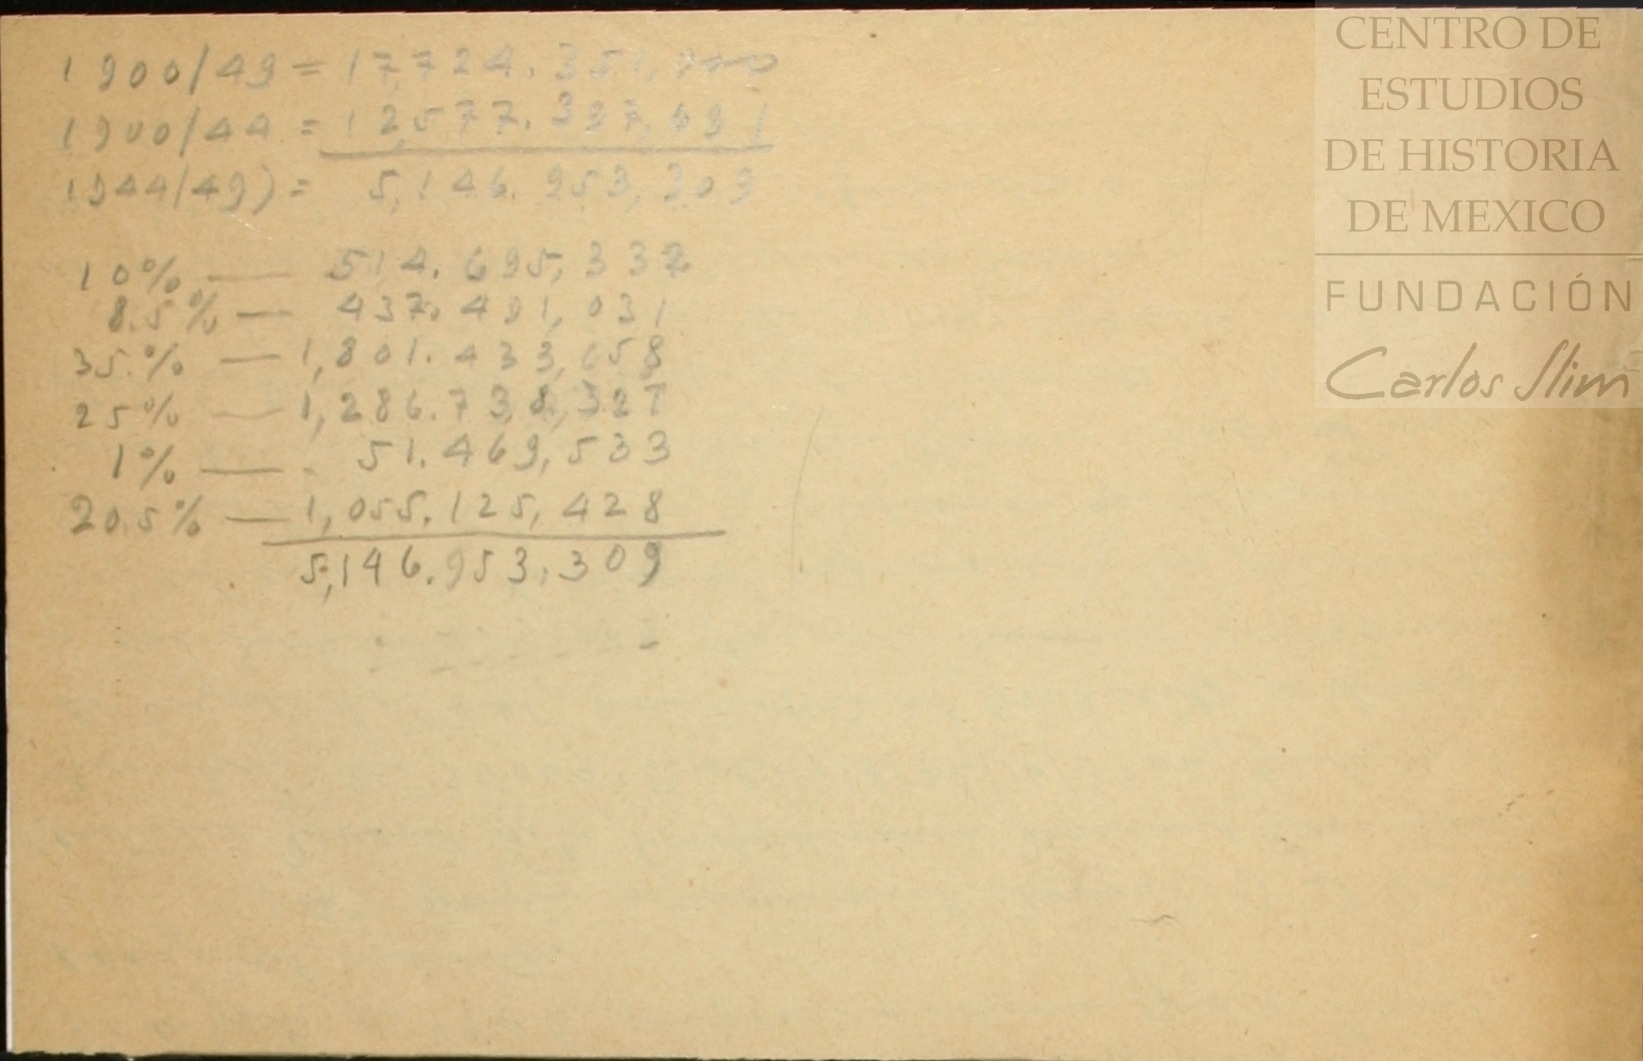 1900/49 = 17,724.351,000
1900/44 = 12,577.397,691
1944/49) = 5,146.953,309
10% — 514.695,332
8.5% — 437.491,031
35.% — 1,801.433,658
25% — 1,286.738,327
1% — 51.469,533
20.5% — 1,055.125,428
5,146.953,309
CENTRO DE
ESTUDIOS
DE HISTORIA
DE MEXICO
FUNDACIÓN
Carlos Slim